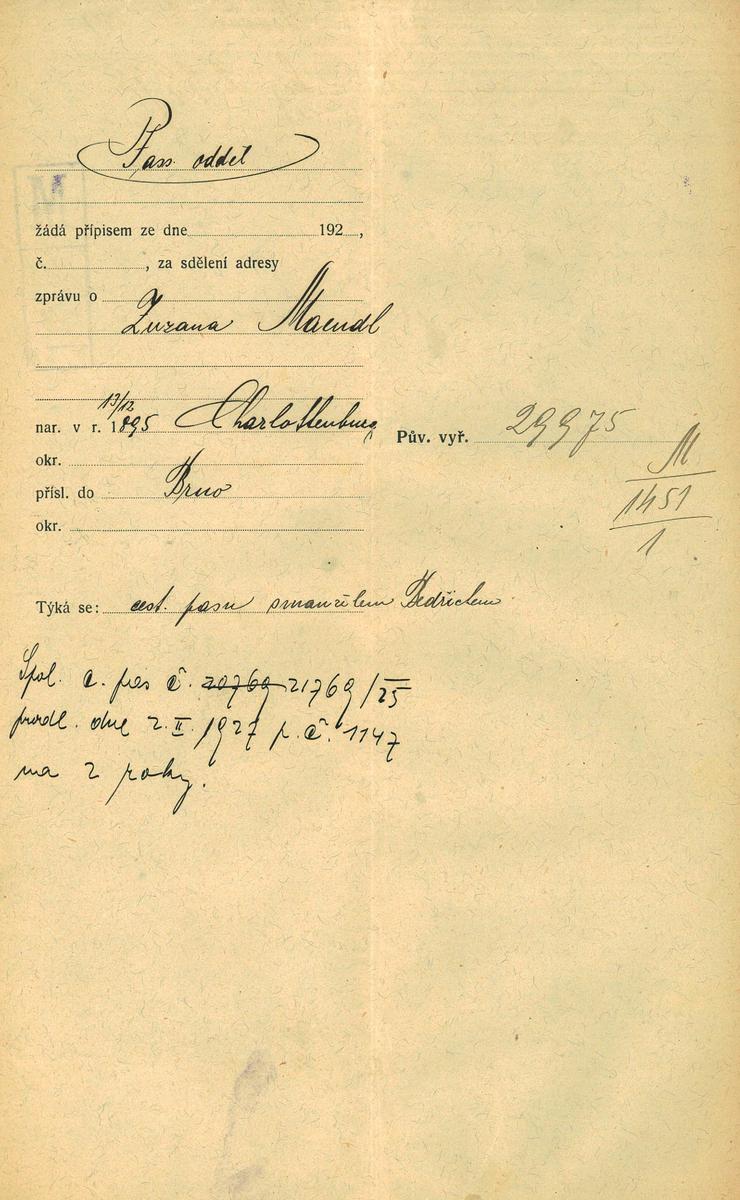 Pass. odděl
žádá přípisem ze dne 192 ,
č. , za sdělení adresy
zprávu o
Zuzana Maendl
13/12
nar. v r. 1895 Charlottenburg
Pův. vyř. 29975
okr.
M
přísl. do Brno
1451
okr.
1
Týká se: cest. pasu s manželem Bedřichem
Spol. c. pas č. 20769 21769/25
prodl. dne 2. II. 1927 p. č. 1147
na 2 roky.